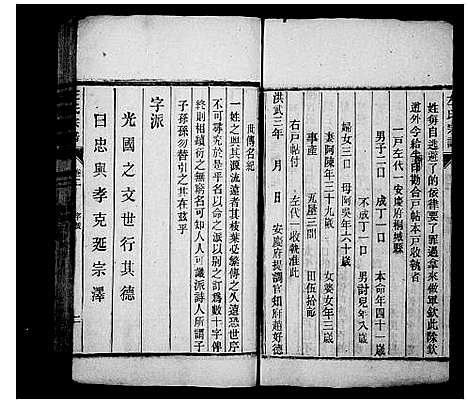 姓每自逃避了的依律要了罪過拿來做軍欽此除欽
遵外今給半印勘合戶帖本戶收執者
一戶左代一 安慶府桐城縣
男子二口 成丁一口 本命年四十一歲
不成丁一口 男討兒年八歲
婦女三口 母阿吳年六十歲
妻阿陳年三十九歲 女婆女年三歲
事產 瓦屋三間 田伍拾畝
右戶帖付 左代一 收執准此
洪武三年 月 日 安慶府提調官知府趙好德
世傳名紀
一姓之興其源流遠者其枝葉必繁傳之久遠恐世序
不可尋究於是乎名以命之派以別之訂為數十字俾
終則相續衍之無窮名可知人人可識派詩人所謂子
子孫孫勿替引之其在茲乎
字派
光國之文世行其德
日忠興孝克延宗澤
左氏宗譜 卷一 字派 一